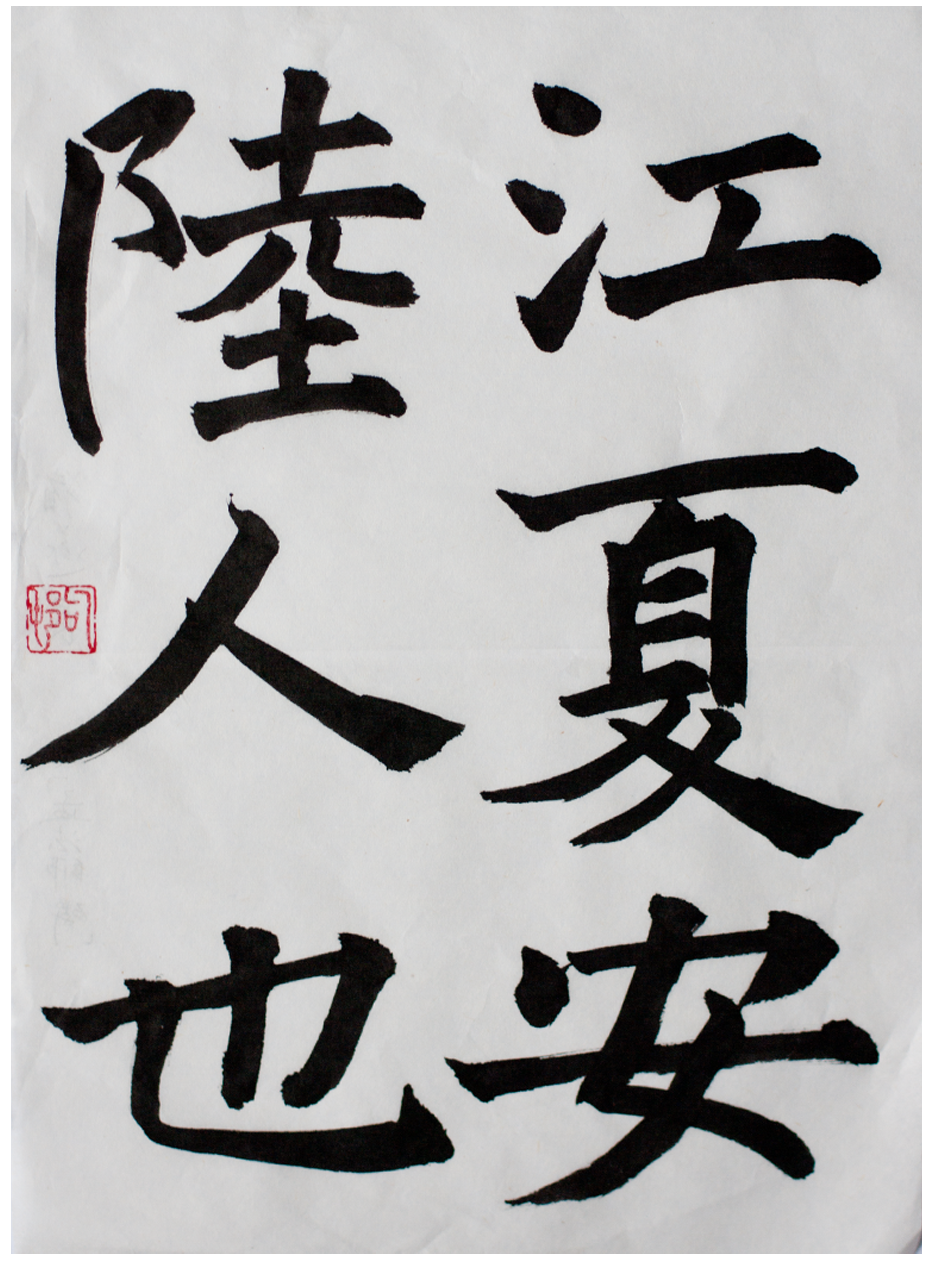 江夏安
陸人也